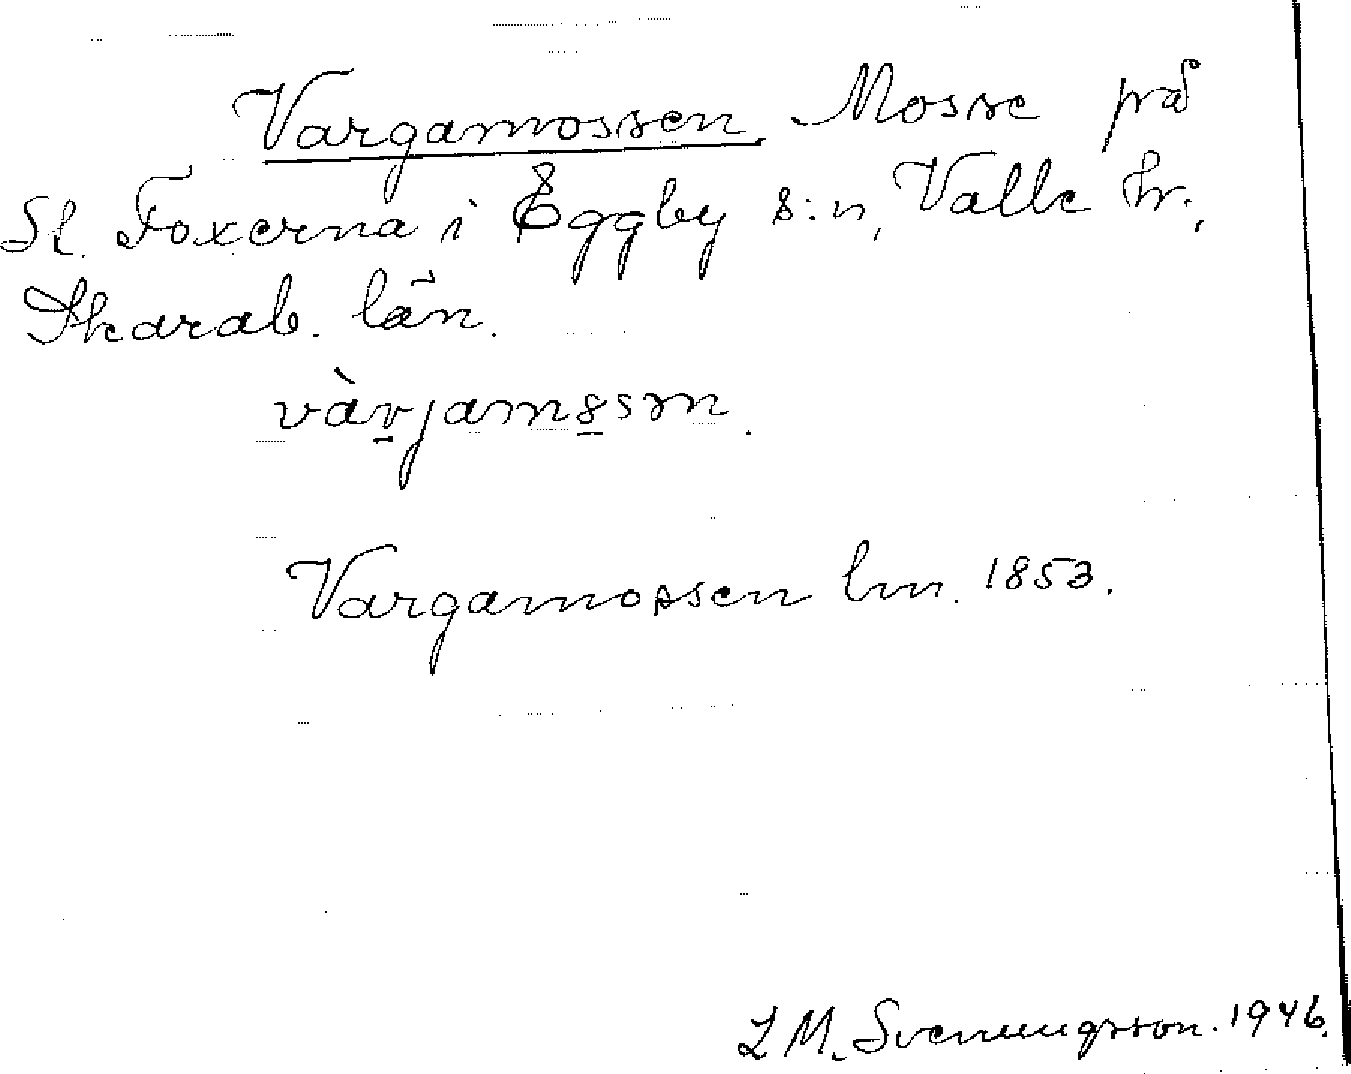 Vargamossen. Mosse på
St. Foxerna i Eggby s:n, Valle hr.,
Skarab. län.
vàrjam8sm.
Vargamossen lm. 1853.
L M. Svenungsson. 1946.